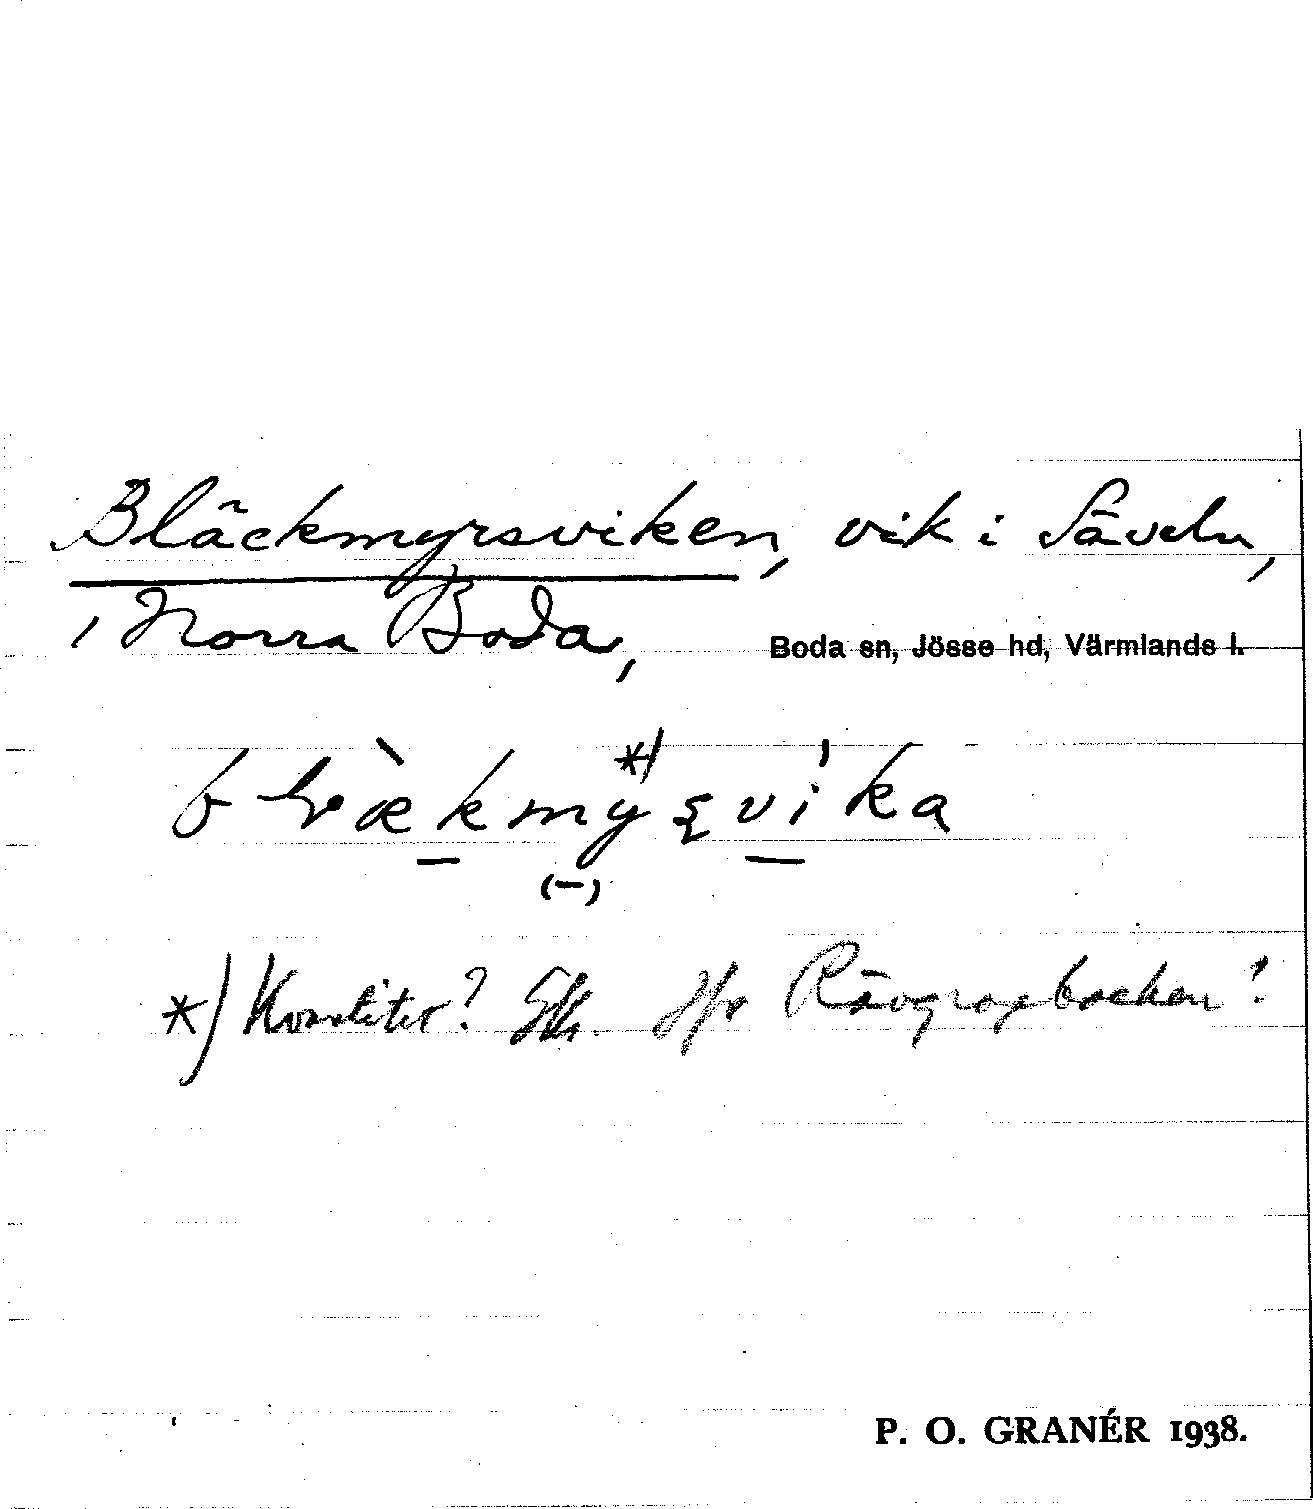 Bläckmyrsviken, vik i Säveln,
i Norra Boda, Boda sn, Jösse hd, Värmlands l.
*)
*) Kvantitet? Jfr Rävgropbacken!
P. O. GRANÉR 1938.